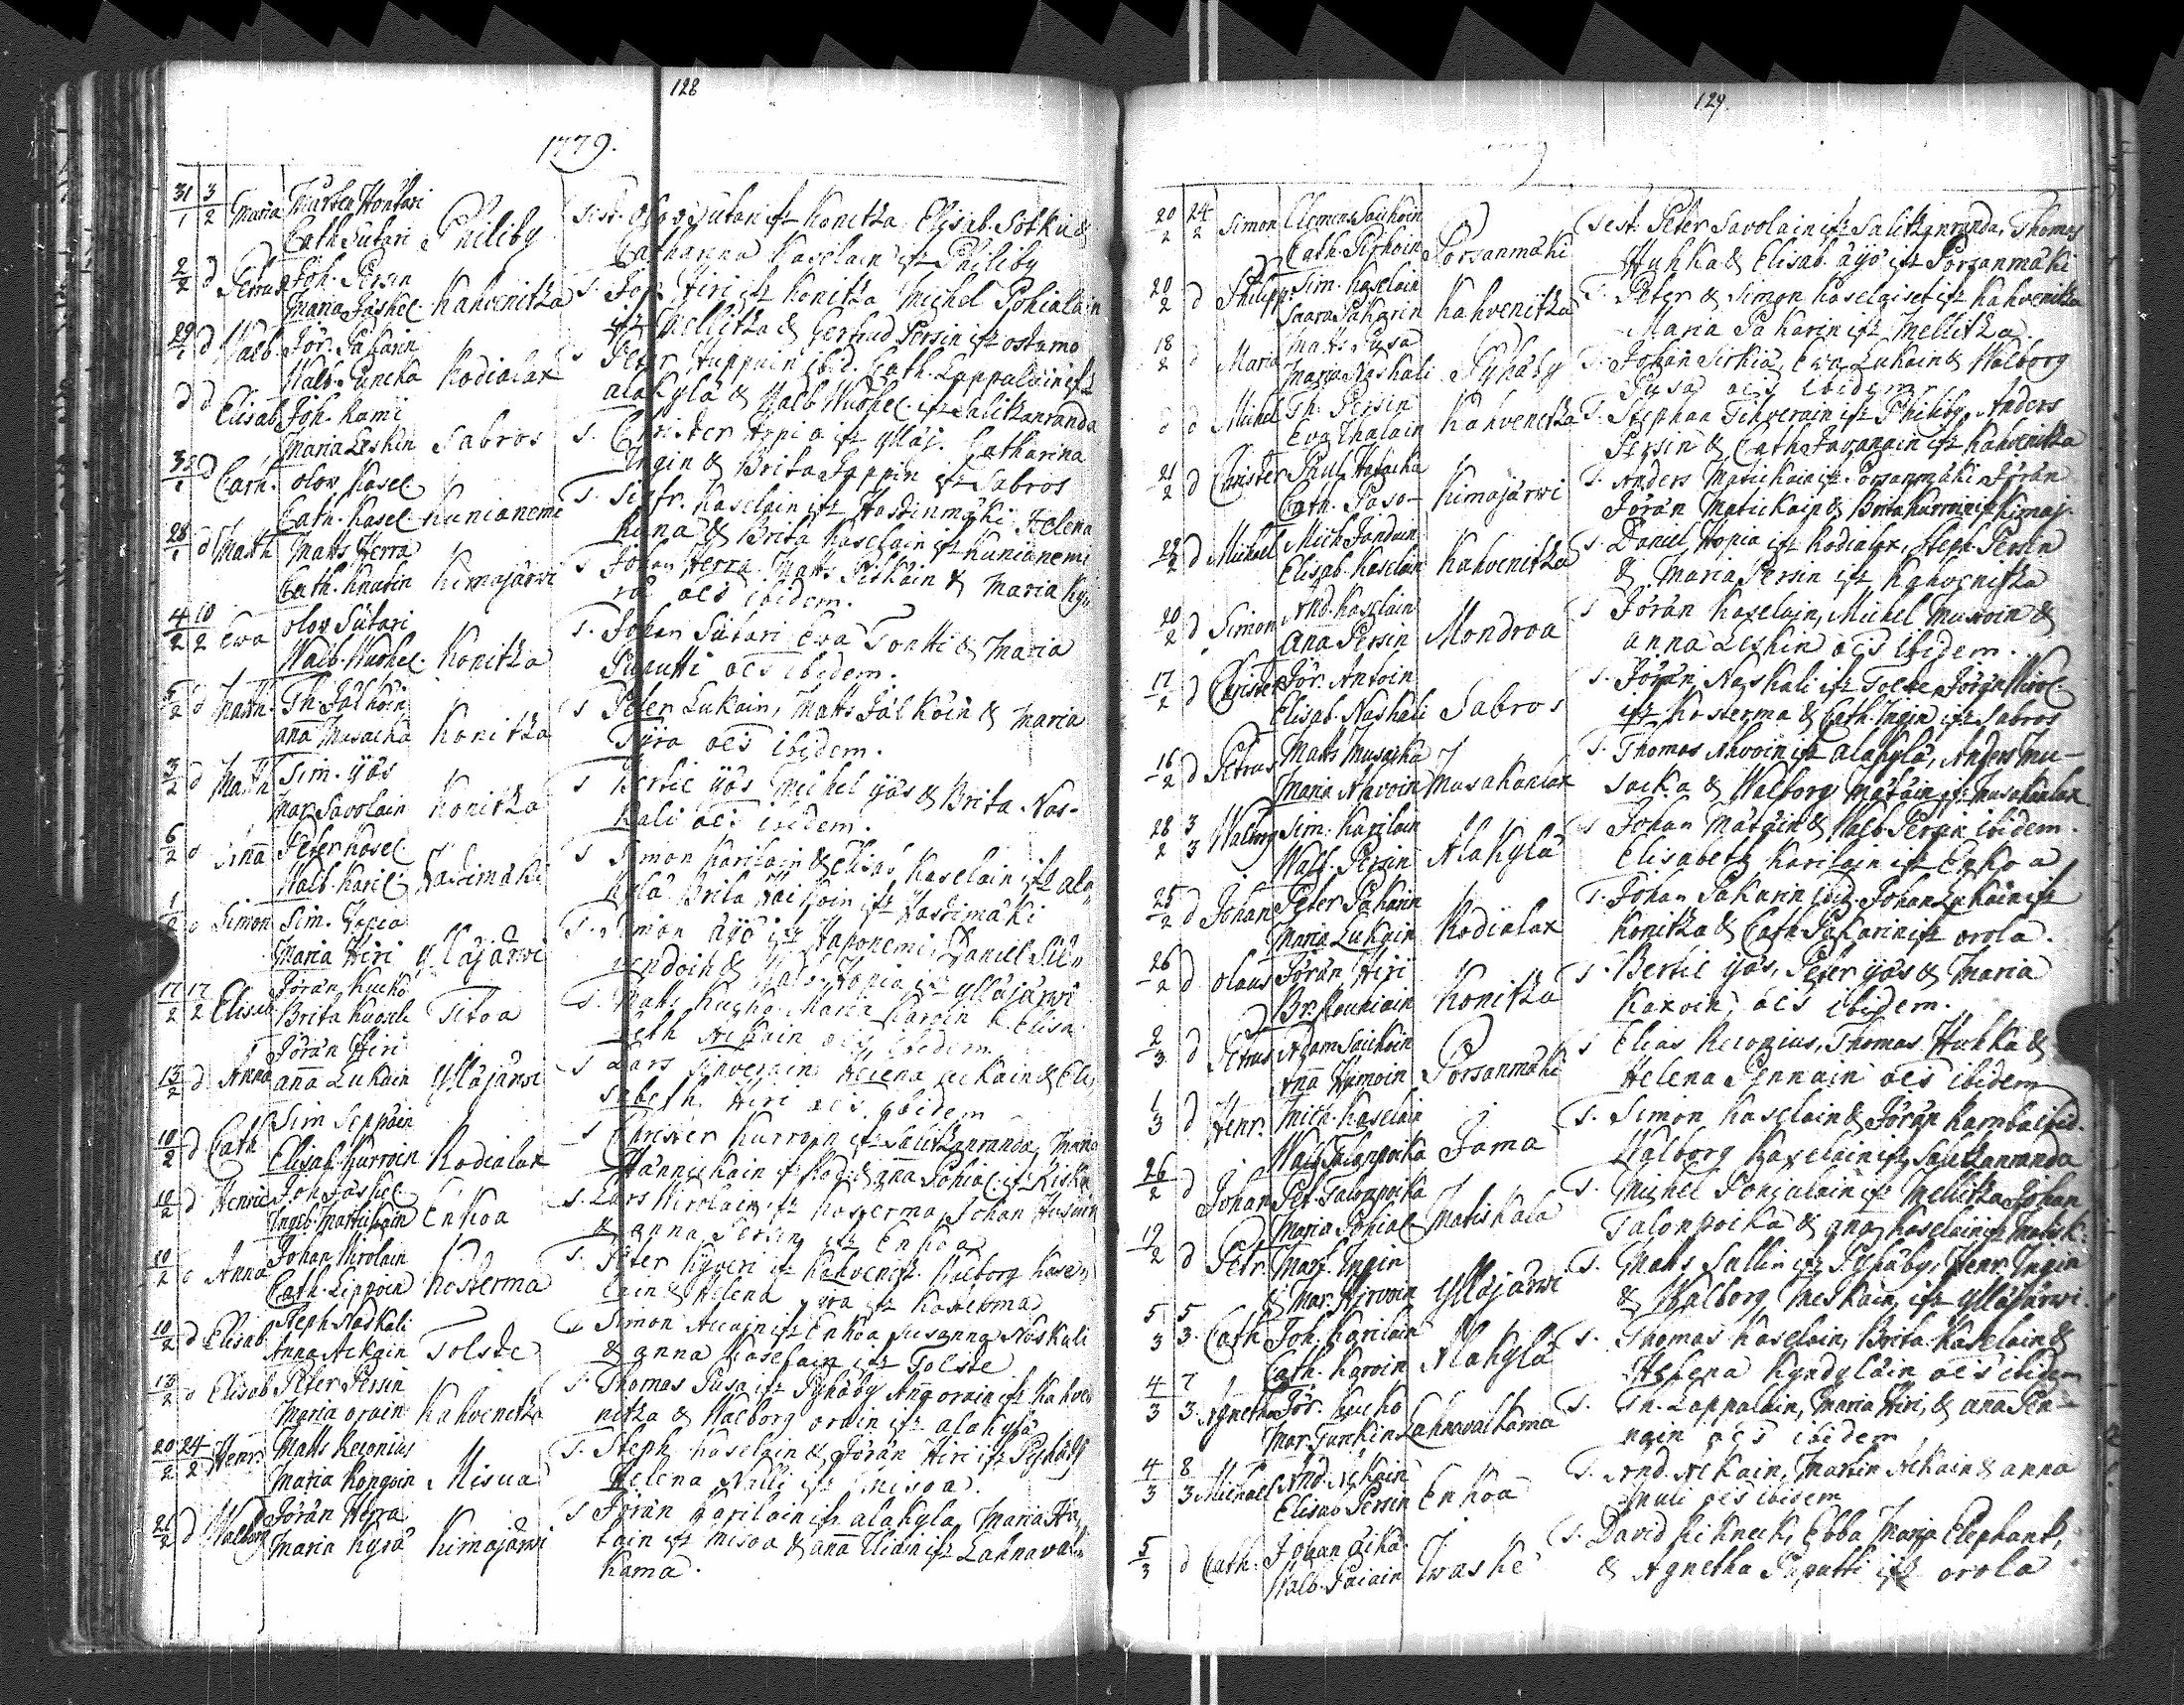 128
1779.
31/1 3/2 Maria Mårten Höntari
Cath Sutari Philiby
Test. Olov Sutari ifr Konitza, Elisab. Sotku &
Catharina Kaselain ifr Philiby
2/2 d Petrus Joh. Persin
Maria Jäskel. Kahvenitza
T. Joh. Hiri ifr Konitza Michel Pohialain
ifr Mellitza & Gertrud Persin ifr Ostamo
29/1 d Walb. Jör. Pakarin
Walb. Puncka Kodialax
T. Peter Huppuin ibid. Cath. Lappalain ifr
Alakylä & Walb. Wuohel. ifr Salitzanranda
d d Elisab. Joh. Rami
Maria Leskin Sabros
T. Christer Hopia ifr Ylläj. Catharina
Ingin & Brita Ippin ifr Sabros
31/1 d Cath. Olov Kasel.
Cath. Kasel. Kunianemi
T. Sigfr. Kaselain ifr Hastinmäki, Helena
& Brita Kaselain ifr Kunianemi
28/1 d Math Matts Herra
Cath. Knutin Kimajärwi
T. Johan Herra Matts Pitkäin & Maria Ky
rä oes ibidem.
4/2 10/2 Ewa Olov Sutari
Walb. Wuohel. Konitza
T. Johan Sutari Ewa Tontti & Maria
Paputti oes ibidem.
5/2 d Math. Th. Jälköin
Ana Musacka Konitza
T. Peter Lukain, Matts Jälköin & Maria
Pyrö oes ibidem.
3/2 d Math Sim. Yäs
Mar. Savolain Konitza
T. Bertil Yäs Michel Yäs & Brita Nas-
kali oes ibidem.
6/2 d Anna Peter Kasel.
Walb. Karil. Hastimäki
T. Simon Karilain & Elisab. Kaselain ifr Ala
kylä Brita Häiköin ifr Hastimäki
1/2 d Simon Sim. Hopia
Maria Hiri Ylläjärwi
T. Simon Äyö ifr Haponemi, Daniel Sil
vendoin & Walb. Hopia ifr Ylläjärwi
17/2 17/2 Elisab Jörän Kucko
Brita Kuosa Titoa
T. Matts Kucko Maria Karoin & Elisa
beth Nickain oes ibidem
13/2 d Anna Jörän Hiri
Ana Lukain Ylläjärwi
T. Lars Tihverain Helena Lukain & Eli
sabeth Hiri oes ibidem
10/2 d Cath Sim Seppäin
Elisab. Kurroin Kodialax
T. Christer Kurroin ifr Salitzanranda, Maria
Hännickain ifr Kod. & Ana Pohial. ifr Kiska
10/2 d Henric Joh Jäskel.
Ingeb. Mattickain Enkoa
T. Lars Mirolain ifr Kosterma, Johan Husuin
& Anna Persin ifr Enkoa
10/2 d Anna Johan Mirolain
Cath. Lippoin Kosterma
T. Peter Kyveri ifr Kahvenitz. Walborg Kase
lain & Helena ifr Kosterma
10/2 d Elisab Steph Naskali
Anna Ackain Tolste
T. Simon Accain ifr Enkoa Susanna Naskali
& Anna Kaselain ifr Tolste
13/2 d Elisab Peter Persin
Maria Orain Kahvenitza
T. Thomas Pusa ifr Pyhäby Ana Orain ifr Kahve
nitza & Walborg Orain ifr Alakylä
20/2 24/2 Henr. Matts Reconius
Maria Rongoin Misua
T. Steph Kaselain & Jörän Hiri ifr Pyhäby
Helena Nalli ifr Misoa.
21/2 d Walborg Jörän Herra
Maria Kyrö Kimajärwi
T. Jörän Karilain ifr Alakylä, Maria Hä
tain ifr Misoa & Ana Uliain ifr Lahnavai
kama.
129.
20/2 24/2 Simon Clemens Saukoin
Cath. Pirhoin Porsanmäki
Test. Peter Savolain ifr Salitzanranda, Thomas
Huhka & Elisab. Äyö ifr Porsanmäki
20/2 d Philipp Sim. Kaselain
Saara Pakarin Kahvenitza
T. Peter & Simon Kaselaiset ifr Kahvenitza
Maria Pakarin ifr Mellitza.
18/2 d Maria Matts Pusa
Maria Naskali Pyhäby
T. Johan Sirkiä, Ewa Lukain & Walborg
Pusa oes ibidem
d d Michel Th. Persin
Eva Ihalain Kahvenitza
T. Stephan Tihverain ifr Philiby, Anders
Persin & Cath Javanain ifr Kahvenitza
21/2 d Christer Paul Hatacka
Cath. Paso Kimajärwi
T. Anders Matickain ifr Porsanmäki Jörän
Jörän Matickain & Brita Kurroin ifr Kimaj.
22/2 d Michael Mich Jandoin
Elisab. Kaselain Kahvenitza
T. Daniel Hopia ifr Kodialax, Steph Persin
& Maria Persin ifr Kahvenitza
20/2 d Simon And. Kaselain
Ana Persin Mondroa
T. Jörän Kaselain, Michel Mustoin &
Anna Leskin oes ibidem.
17/2 d Christer Jör. Antoin
Elisab. Naskali Sabros
T. Jörän Naskali ifr Tolste Jörän Mirol.
ifr Kosterma & Cath. Ingin ifr Sabros
16/2 d Petrus Matts Musacka
Maria Ahvoin Musakanlax
T. Thomas Ahvoin ifr Alakylä, Anders Mu-
sacka & Walborg Mätäin ifr Musakalax
28/2 3/3 Walborg Sim. Karilain
Walb. Persin Alakylä
T. Johan Mätäin & Walb. Persin ibidem.
Elisabeth Karilain ifr Enkoa
25/2 d Johan Peter Pakarin
Maria Lukain Kodialax
T. Johan Pakarin ibid. Johan Lukain ifr
Konitza & Cath Pakarin ifr Orola.
26/2 d Olaus Jörän Hiri
Br. Rouniain Konitza
T. Bertil Yäs, Peter Yäs & Maria
Karoin, oes ibidem.
2/3 d Petrus Adam Saukoin
Ana Hämoin Porsanmäki
T. Elias Reconius, Thomas Huhka &
Helena Pennain oes ibidem
1/3 d Henr. Mich. Kaselain
Walb Talonpoika Jama
T. Simon Kaselain & Jörän Rambal ibid.
Walborg Kaselain ifr Salitzanranda
26/2 d Johan Pet. Talonpoika
Maria Pohial Matiskala
T. Michel Pohjalain ifr Mellitza Johan
Talonpoika & Ana Kaselain ifr Matisk:
19/2 d Petr. Mart. Ingin
& Mar. Hirvoin Ylläjärwi
T. Matts Sallin ifr Pyhäby, Henr. Ingin
& Walborg Meskain ifr Ylläjärwi
5/3 5/3 Cath Joh. Karilain
Cath. Karoin Alakylä
T. Thomas Kaselain, Brita Kaselain &
Helena Kyndyläin oes ibidem
4/3 7/3 Agnetha Jör. Kucko
Mar. Turckin Lahnavaikama
T. Th. Lappalain, Maria Hiri, & Ana Pen-
nain oes ibidem
4/3 8/3 Michael And. Ackain
Elisab Persin Enkoa
T. And. Ackain, Martin Ackain & Anna
Muli oes ibidem
5/3 d Cath. Johan Äikä
Walb. Paiain Iwaske
T. David Hickneck, Ebba Maria Elephant,
& Agnetha Paputti ifr Orola